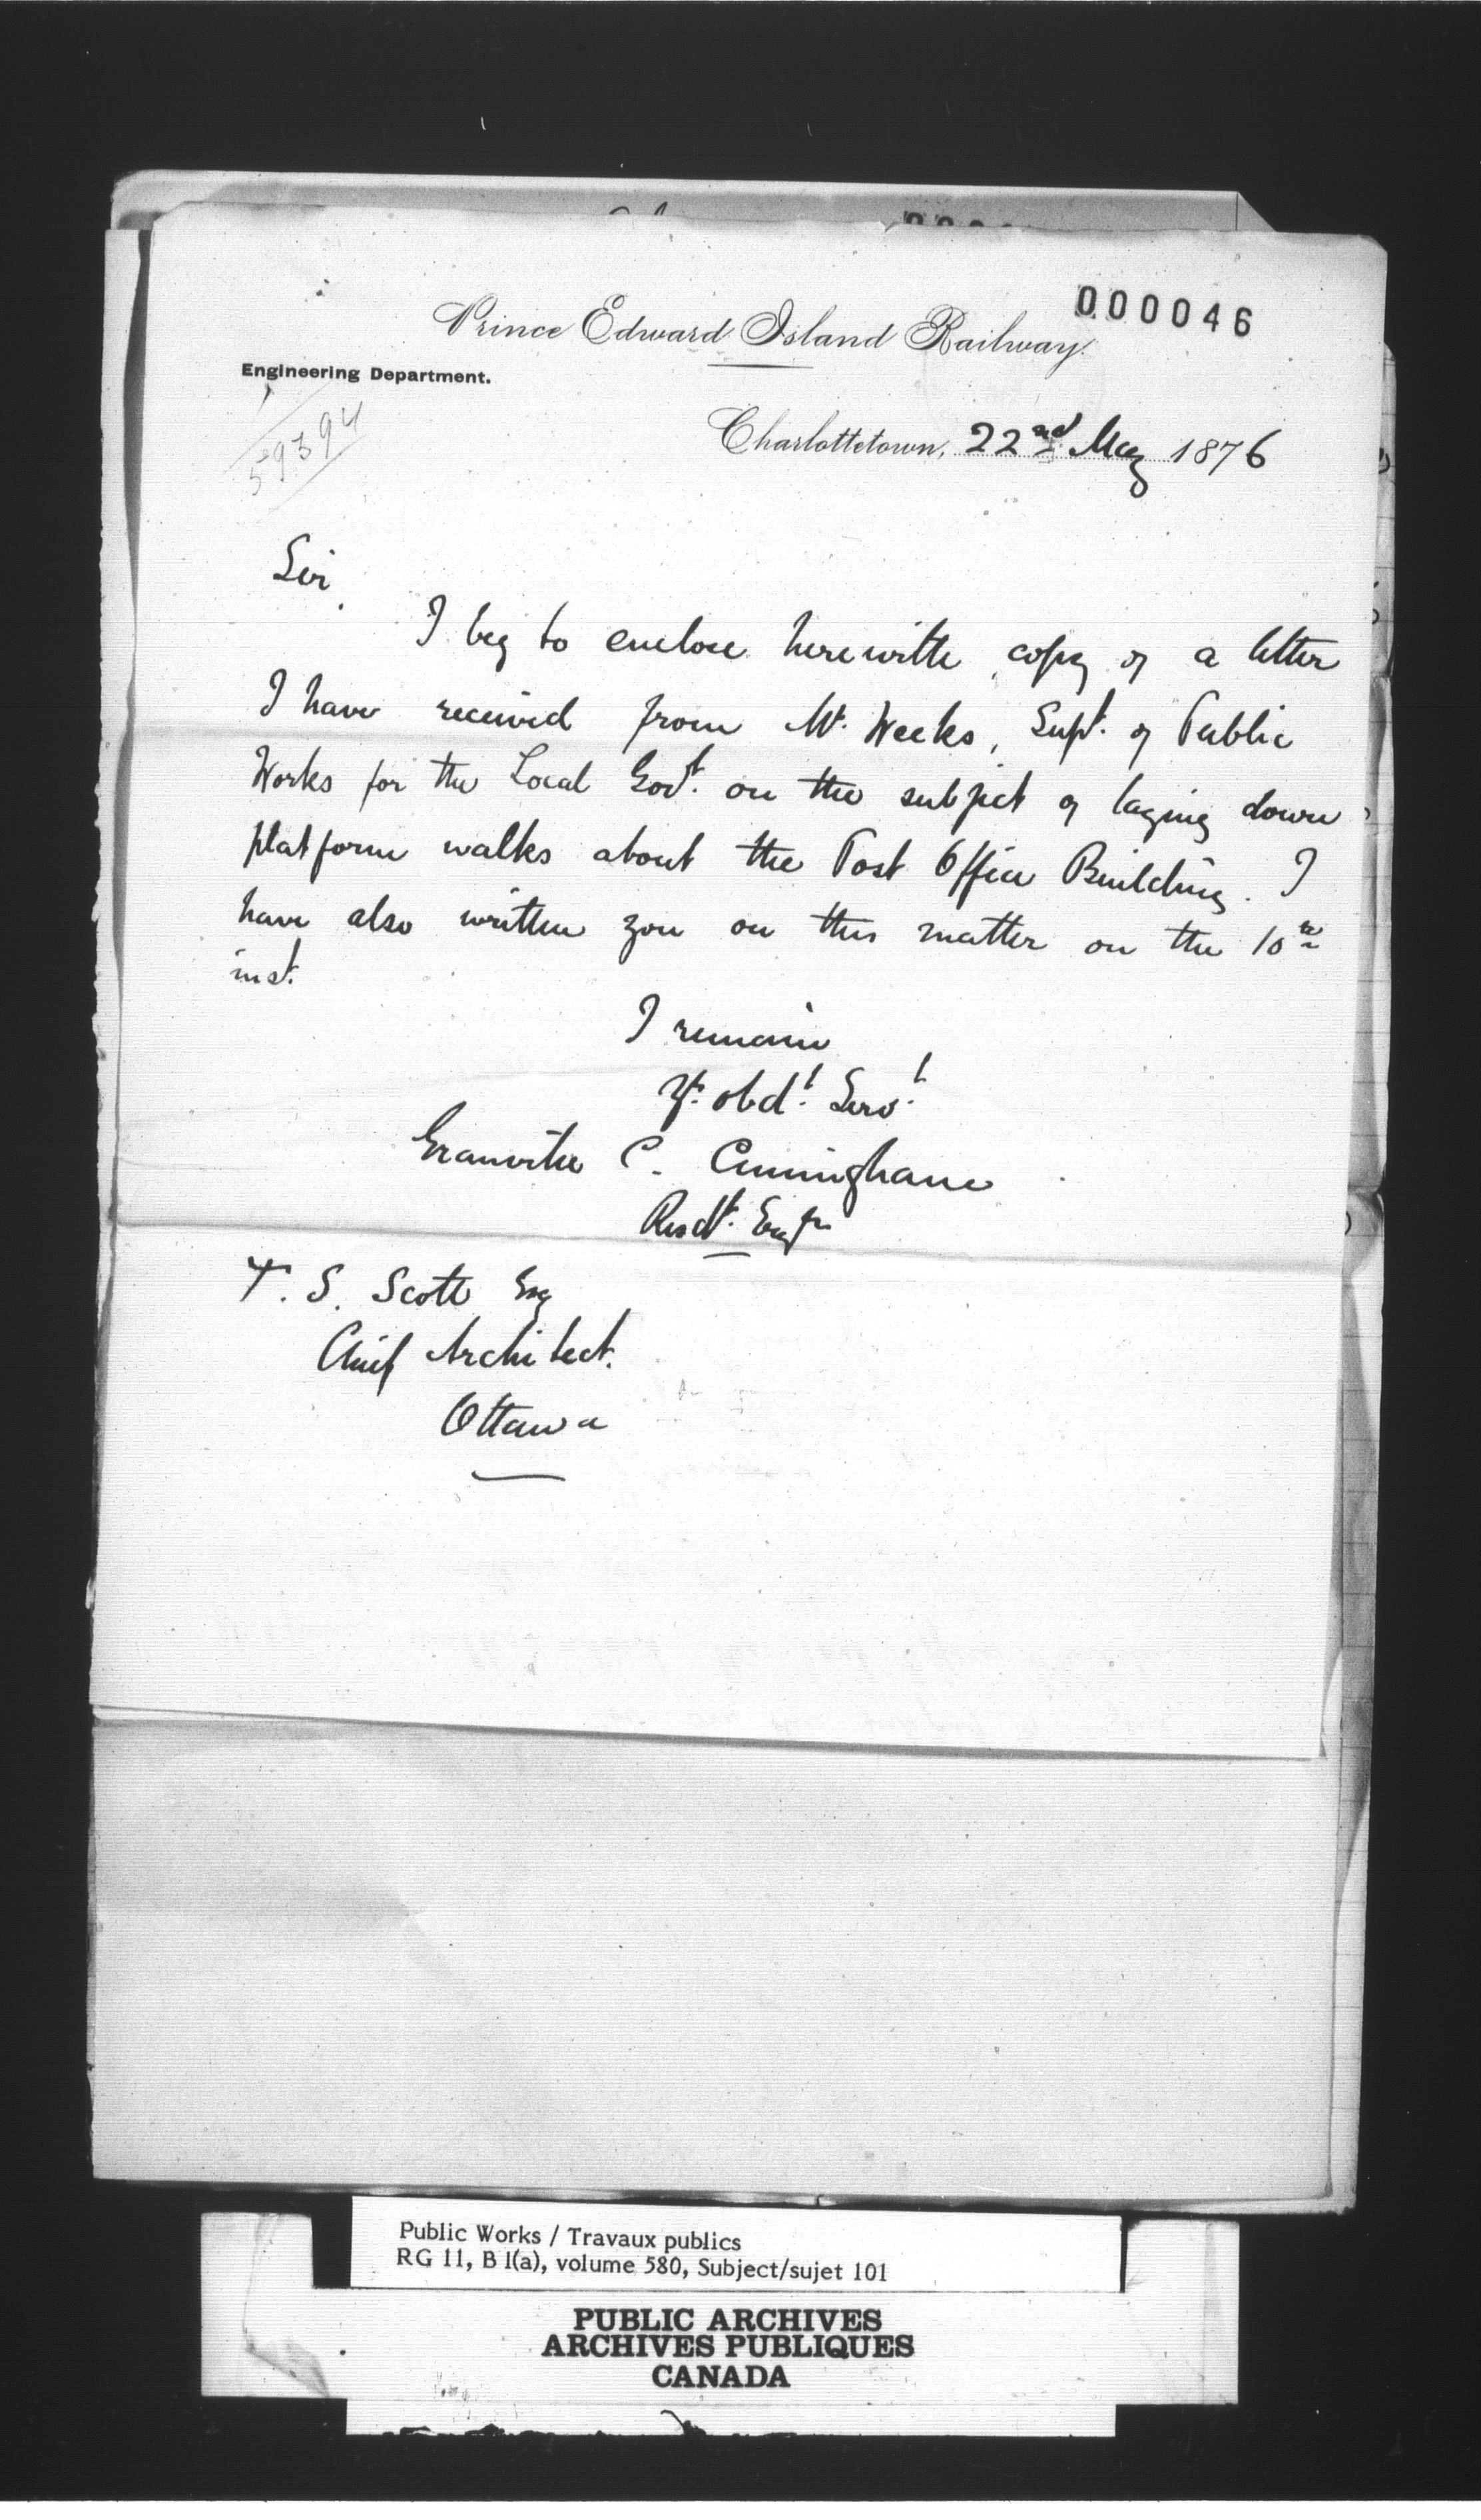 000046
Prince Edward Island Railway.
Engineering Department.
59394
Charlottetown, 22nd May 1876
Sir,
I beg to enclose herewith, copy of a letter
I have received from Mr. Weeks, Supt. of Public
Works for the Local Govt. on the subject of laying down
platform walks about the Post Office Building. I
have also written you on this matter on the 10th
inst.
I remain
Yr. obdt. Servt.
Granville C. Cuninghame
Resdt. Engr
T. S. Scott Esq
Chief Architect.
Ottawa
Public Works / Travaux publics
RG 11, B 1(a), volume 580, Subject/sujet 101
PUBLIC ARCHIVES
ARCHIVES PUBLIQUES
CANADA